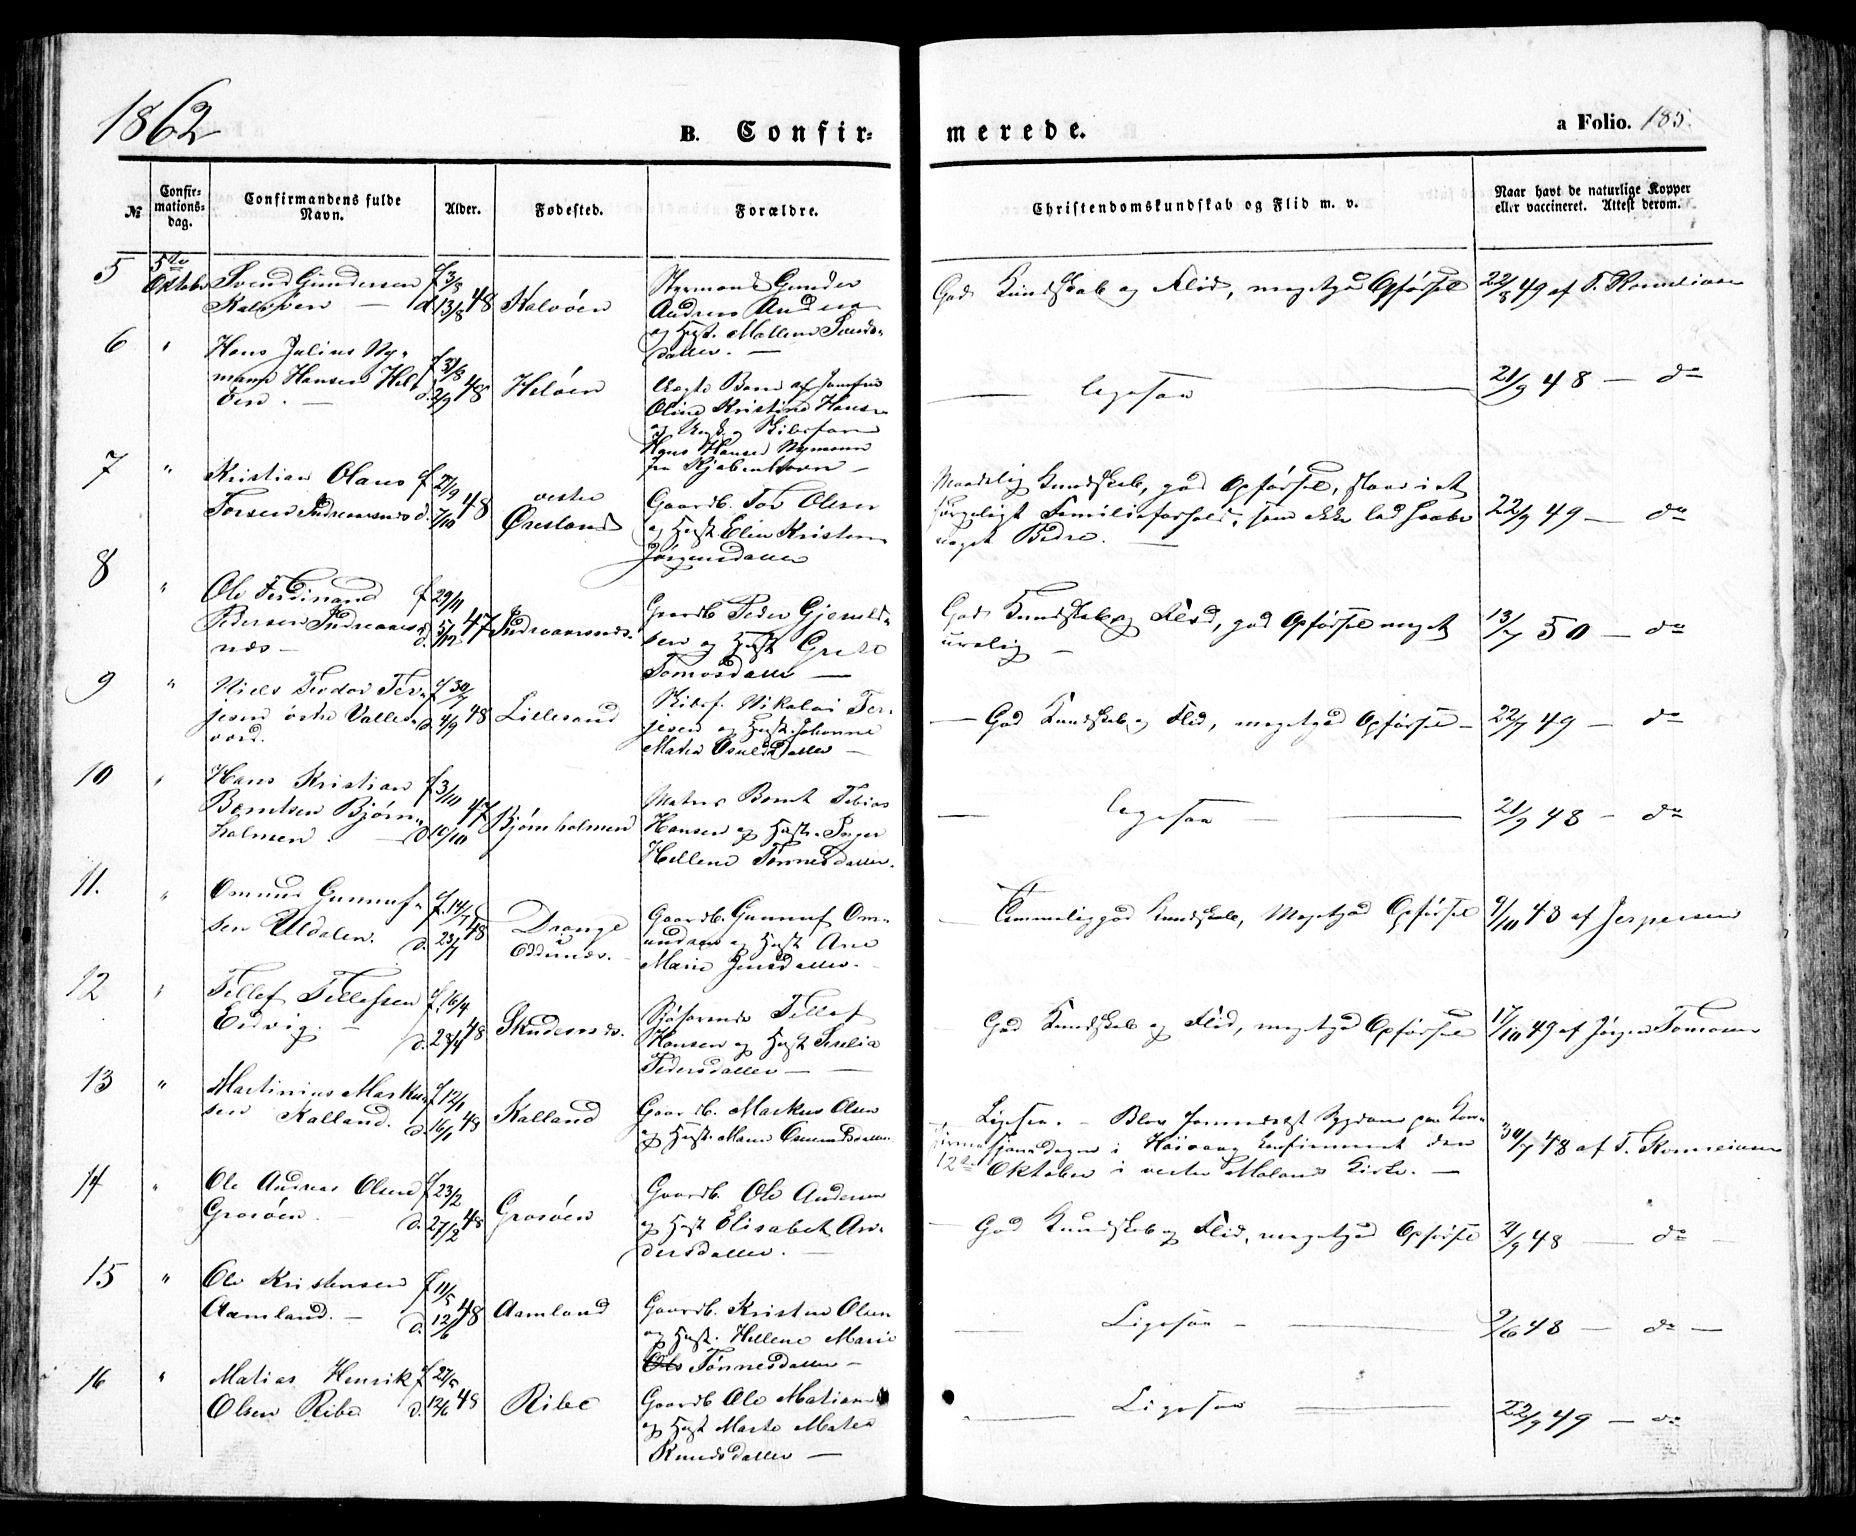 1862
B. Confir-
merede.
a Folio. 185.
№
Confir-
mations-
dag.
Confirmandens fulde
Navn.
Alder.
Fødested.
Forældre.
Christendomskundskab og Flid m. v.
Naar havt de naturlige Kopper
eller vaccineret. Attest derom.
5 5te Svend Gundersen f 3/8 Styrmand Gunder
Oktober Kalvøen — d. 13/8 48 Kalvøen Andreas
God Kundskab og Flid, megetgod Opførsel 22/8 49 af T.
og Hust. Mallene Svends-
datter. —
6 " Hans Julius Ny-
mann Hansen Hel- f 31/8
øen. — d. 2/9 48 Heløen Uægte Barn af
Oline Kristine Hans-
og
Hans Hansen Nymann
fra Kjøbenhavn —
— ligesaa — 21/9 48 — do
7 " Kristian Olaus f 27/9 vestre
Torsen Indreaasnes d. 7/10 48 Øresland Gaardb. Tor Olsen
og Hust Elen Kristine
Jørgensdatter
Maadelig Kundskab, god Opførsel, staar i et
sørgeligt Familieforhold, som ikke lod haabe
noget Bedre. — 22/9 49 — do
8 " Ole Ferdinand f 29/11
Pedersen Indreaas- d. 5/12 47 Indreaasnes.
nes —
Gaardb Peder Gjeruld-
sen og Hust Grete
Tomasdatter —
God Kundskab og Flid, god Opførsel meget
urolig — 13/7 50 — do
9 " Niels Teodor Ter- f 30/7
jesen østre Valles- d. 4/9 48 Lillesand
verd.
Skibsf. Nikolai Ter-
jesen og Hust. Johanne
Maria Osulddatter —
— God Kundskab og Flid, megetgod Opførsel — 22/7 49 — do
10 " Hans Kristian f 3/10
Berntsen Bjørn- 47
holmen. — d. 10/10 Bjørnholmen
Matros Bernt Tobias
Hansen og Hust. Inger
Hellene Tønnesdatter.
— ligesaa — 21/9 48 — do
11. " Omund Gunnuf- f. 14/7
sen Uldalen. d. 23/7 48 Drange
i
Eddunæs. —
Gaardb. Gunnuf Om-
undsen og Hust Ane
Marie Jensdatter. —
— Temmeliggod Kundskab, Megetgod Opførsel 9/10 48 af Jespersen
12 " Tellef Tellefsen f. 16/4
Eidvig. — d. 23/4 48 Skudesnes.
Sjøfarende Tellef
Hansen og Hust Serelia
Pedersdatter —
God Kundskab og Flid, megetgod Opførsel 17/10 49 af Jørgen Tomasen
13 " Martinius Markus- f 12/1
sen Kalland. d. 16/1 48 Kalland
Gaardb. Markus Olsen
og Hust. Maren Omundsdatter
Ligesaa. — Blev formedelst Sygdom paa Kon-
firmasjonsdagen i Høivaag konfirmeret den
12te Oktober i vestre Moland Kirke. —
30/7 48 af T.
14 " Ole Andreas Olsen f 23/2
Grosøen. — d. 27/2 48 Grosøen
Gaardb. Ole Andersen
og Hust Elisabet An-
dersdatter. —
— God Kundskab og Flid, megetgod Opførsel 21/9 48 — do —
15 " Ole Kristensen f 11/5
Aamland. — d. 12/6 48 Aamland
Gaardb. Kristen Olsen
og Hust. Hellene Marie
Tønnesdatter —
— Ligesaa — 9/6 48 — do —
16 " Matias Henrik f 27/5
Olsen Ribe d. 12/6 48 Ribe
Gaardb Ole Matias
og Hust Marte Matea
Knudsdatter —
— Ligesaa — 22/9 49 — do